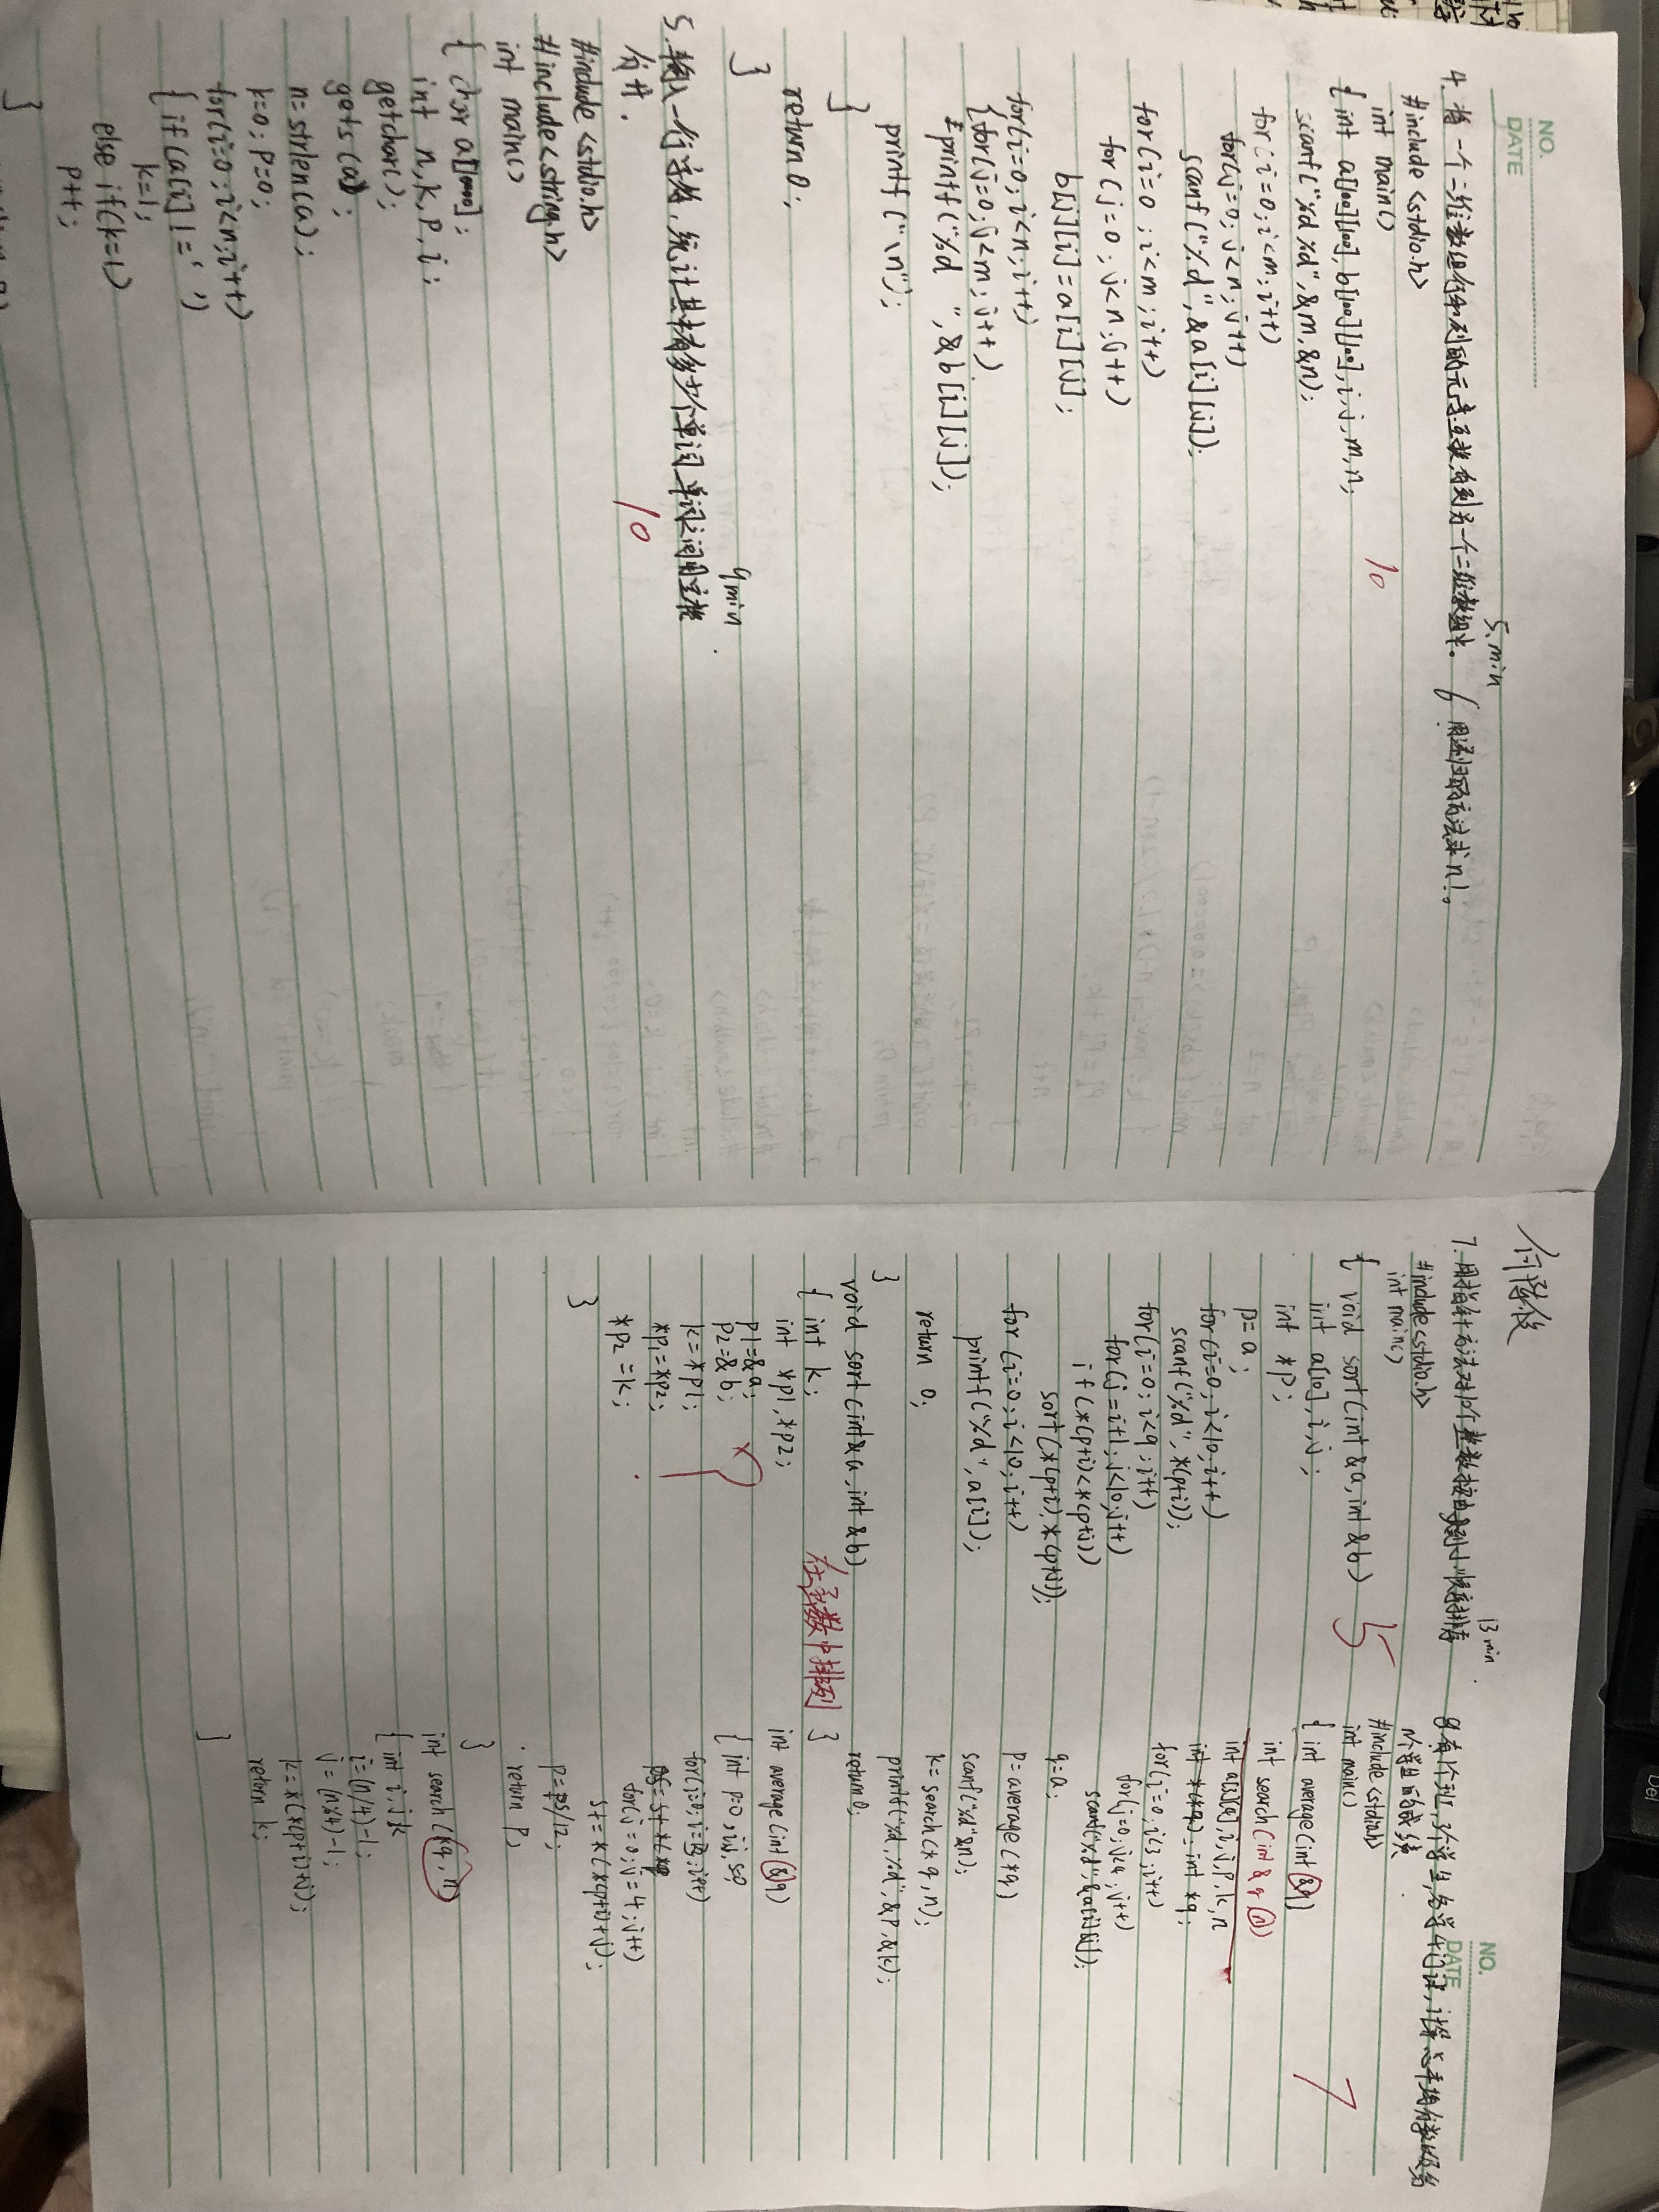 NO.
DATE
5.min
4. 将一个二维数组行和列的元素互换,存到另一个二维数组中。
#include <stdio.h>
int main()
{ int a[100][100],b[100][100],i,j,m,n;
10
scanf("%d%d",&m,&n);
for(i=0;i<m;i++)
for(j=0;j<n;j++)
scanf("%d",&a[i][j]);
for(i=0;i<m;i++)
for(j=0;j<n;j++)
b[j][i]=a[i][j];
for(i=0;i<n;i++)
{for(j=0;j<m;j++)
printf("%d ",&b[i][j]);
printf("\n");
}
return 0;
}
9min
5.输入一行字符,统计其中有多少个单词,单词之间用空格
分开.
10
#include <stdio.h>
#include<string.h>
int main()
{ char a[1000];
int n,k,p,i;
getchar();
gets(a);
n=strlen(a);
k=0;p=0;
for(i=0;i<n;i++)
{ if(a[i]!=' ')
k=1;
else if(k=1)
p++;
}
6 用递归的方法求n!。
13min
7.用指针方法对10个整数按由到小顺序排序
#include<stdio.h>
int main()
{ void sort(int &a,int &b)
15
int a[10],i,j;
int *p;
p=a;
for(i=0;i<10;i++)
scanf("%d",*(p+i));
for(i=0;i<9;i++)
for(j=i+1;j<10;j++)
if(*(p+i)<*(p+j))
sort(*(p+i),*(p+j));
for(i=0;i<10;i++)
printf("%d",a[i]);
return 0;
}
void sort(int &a,int &b)
{ int k;
在函数中排列
int *p1,*p2;
p1=&a;
p2=&b;
k=*p1;
*p1=*p2;
*p2=k;
}
NO.
DATE
8.有个班,3个学生,各学4门课,计算总平均分数以及第
n个学生的成绩
#include<stdio.h>
int main()
{ int average(int &q)
7
int search(int &q n)
int a[3][4],i,j,p,k,n
int *(*q);int *q;
for(i=0;i<3;i++)
for(j=0;j<4;j++)
scanf("%d",&a[i][j]);
q=a;
p=average(*q)
scanf("%d"&n);
k=search(*q,n);
printf("%d,%d",&p,&k);
return 0;
}
int average(int &q)
{ int p=0,i,j,s=0
for(i=0;i=3;i++)
for(j=0;j=4;j++)
s+=*(*(p+i)+j);
p=s/12;
return p;
}
int search(*q,n)
{ int i,j,k
i=(n/4)-1;
j=(n%4)-1;
k=*(*(p+i)+j);
return k;
}